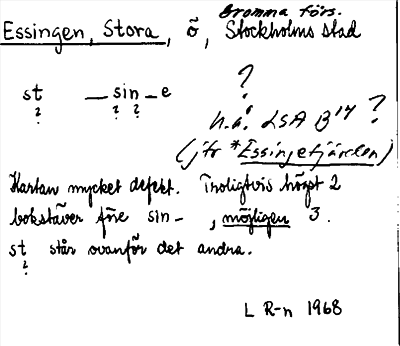 Bromma förs.
Essingen, Stora, ö, Stockholms stad
st — sin — e ?
? ? ?
h.a. LSA B 14 ?
(jfr *Essingefjärden)
Kartan mycket defekt. Troligtvis högst 2
bokstäver före sin-, möjligen 3.
st står ovanför det andra.
?
L R-n 1968